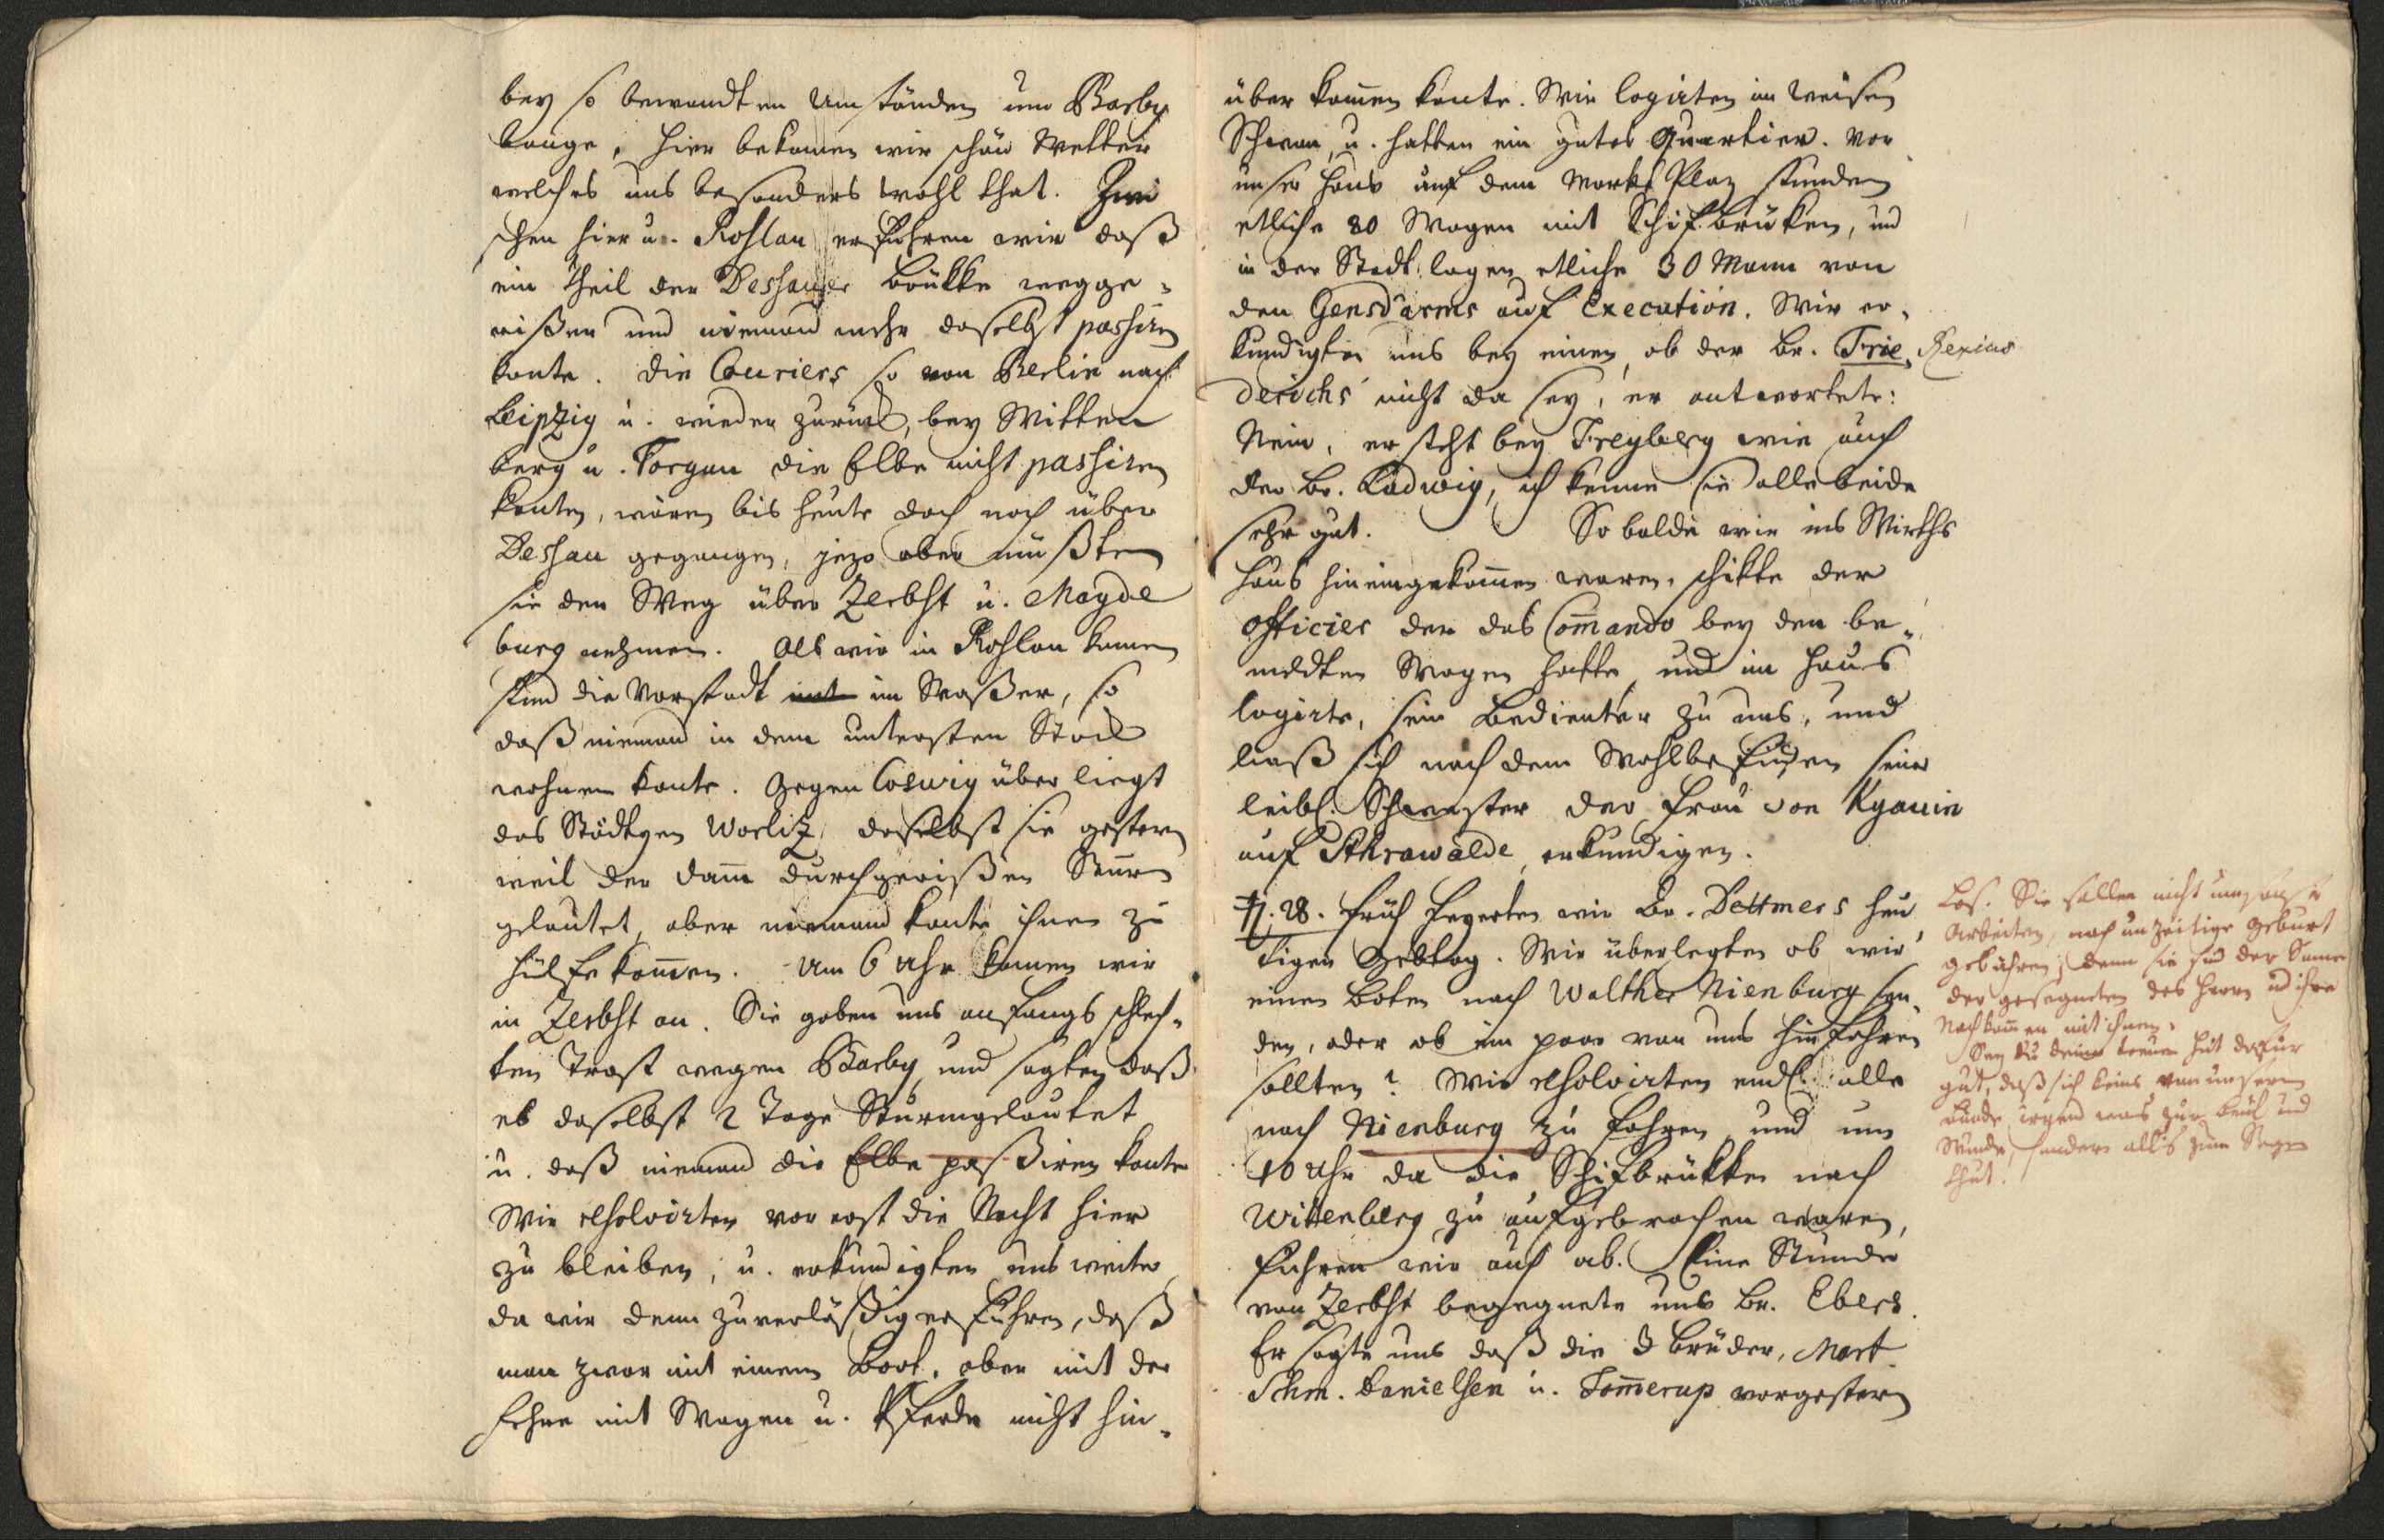 bey so bewandten Umständen um Barby
bange. Hier bekamen wir schön Wetter
welches uns besonders wohl that. Zwi
schen hier u. Roßlau erfuhren wir daß
ein Theil der Dessauer Brükke wegge-
rißen und niemand mehr daselbst passiren
konte. Die Couriers so von Berlin nach
Leipzig u. wieder zurück, bey Witten
berg u. Torgau die Elbe nicht passiren
konten, wären bis heute doch noch über
Dessau gegangen, jezo aber müßten
sie den Weg über Zerbst u. Magde
burg nehmen. Als wir in Roßlau kamen
stund die Vorstadt mit im Waßer, so
daß niemand in dem untersten Stock
wohnen konte. Gegen Coswig über liegt
das Städtgen Worliz, daselbst sie gestern
weil der Damm durchgerißen Sturm
geläutet, aber niemand konte ihnen zu
Hülfe kommen. Um 6 Uhr kamen wir
in Zerbst an. Sie gaben uns anfangs schlech-
ten Trost wegen Barby, und sagten daß
es daselbst 2 Tage Sturmgeläutet
u. daß niemand die Elbe paßiren konte
Wir resolvirten vor erst die Nacht hier
zu bleiben, u. erkundigten uns weiter
da wir denn zuverläßig erfuhren, daß
man zwar mit einem Boot, aber mit der
Fehre mit Wagen u. Pferde nicht hin-
über kommen konte. Wir logirten im weisen
Schwan, u. hatten ein gutes Quartier. Vor
unser Haus auf dem Markt Plaz stunden
etliche 80 Wagen mit Schifbrüken, und
in der Stadt lagen etliche 30 Mann von
den Gensd'armes auf Execution. Wir er-
kundigten uns bey einen, ob der Br. Frie-
derichs nicht da sey, er antwortete:
Nein, er steht bey Freyberg wie auch
der Br. Ludwig, ich kenne sie alle beide
sehr gut. So balde wir ins Wirths
Haus hineingekommen waren, schikte der
Officier der das Commando bey den be-
meldten Wagen hatte, und im Hause
logirte, sein Bedienter zu uns, und
ließ sich nach dem Wohlbefinden seiner
leibl. Schwester der Frau von Kyauin
auf Sthrawalde erkundigen.
28. Früh feyerten wir Br. Dettmers heu
tigen Gebtag. Wir überlegten ob wir
einen Boten nach Walther Nienburg sen-
den, oder ob ein paar von uns hinfahren
sollten? Wir resolvirten endl. alle
nach Nienburg zu fahren, und um
10 Uhr da die Schifbrükken nach
Wittenberg zu aufgebrochen waren,
fuhren wir auch ab. Eine Stunde
von Zerbst begegnete uns Br. Ebers.
Er sagte uns daß die 3 Brüder, Mart.
Schm. Danielsen u. Tommerup vorgestern
Los. Sie sollen nicht umsonst
arbeiten, noch unzeitige Geburt
gebähren; denn sie sind der Same
der gesegneten des Herrn und ihre
Nachkommen mit ihnen.
Sey du deine treue Hut dafür
gut, daß sich keins von unserm
Bunde irgend was zur Beul und
Wunde, sondern alls zum Segen
thut.